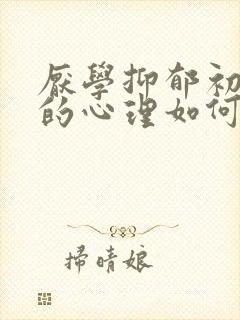 厭學抑郁初
的心理如何
掃晴娘